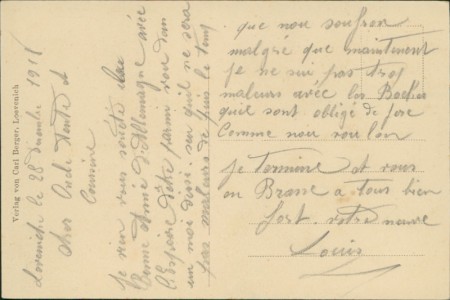 Verlag von Carl Berger, Loevenich
Lovenich le 28 Decembre 1918
Cher Oncle Tente et
Cousine
Je vien vous souété une
Bonne Année d'Allemagne avec
l'Espoire d'etre parmi vou dan
un moi d'ici, seu qui ne sera
pas maleurs de puis le temp
que nou soufron
malgré que maintenent
je ne sui pas trop
maleurs avéc les Boches
quil sont obligé de fere
Comme nou voulon
je termine et vous
en Brasse a tous bien
fort. votre neveu
Louis